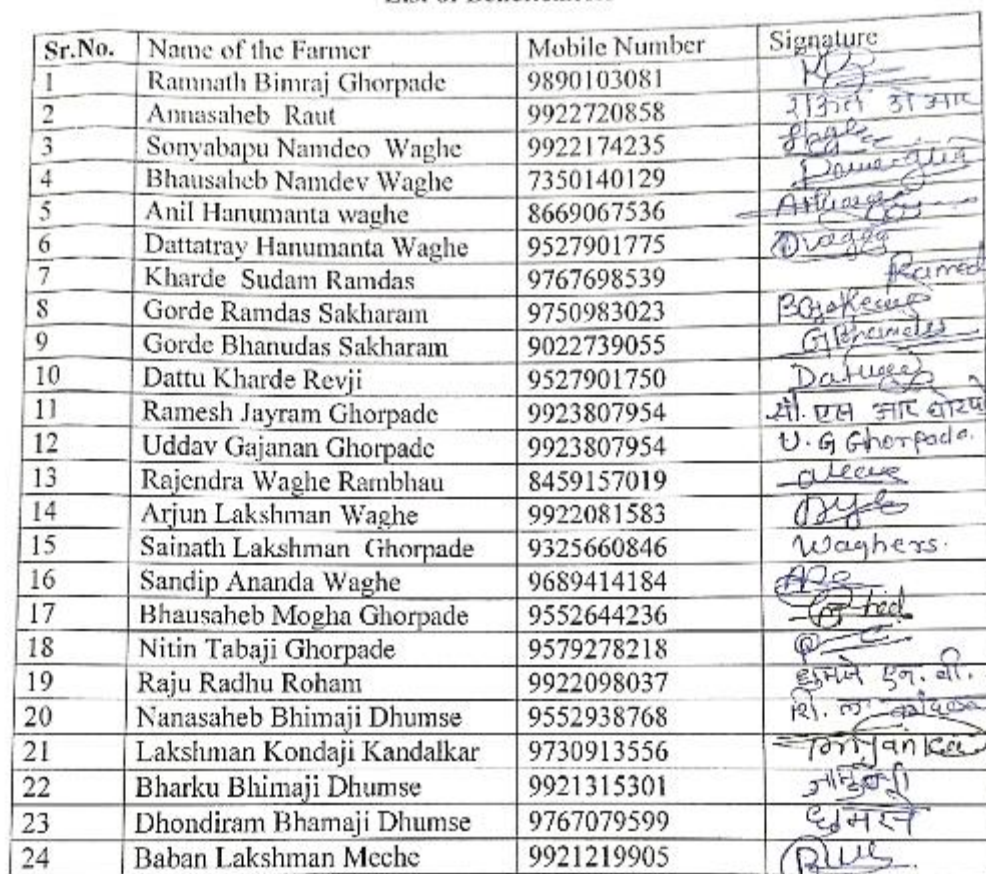 List of Beneficiaries
Sr.No. Name of the Farmer Mobile Number Signature
1 Ramnath Bimraj Ghorpade 9890103081
2 Annasaheb Raut 9922720858
3 Sonyabapu Namdeo Waghe 9922174235
4 Bhausaheb Namdev Waghe 7350140129
5 Anil Hanumanta waghe 8669067536
6 Dattatray Hanumanta Waghe 9527901775
7 Kharde Sudam Ramdas 9767698539
8 Gorde Ramdas Sakharam 9750983023
9 Gorde Bhanudas Sakharam 9022739055
10 Dattu Kharde Revji 9527901750
11 Ramesh Jayram Ghorpade 9923807954
12 Uddav Gajanan Ghorpade 9923807954 U. G Ghorpade.
13 Rajendra Waghe Rambhau 8459157019
14 Arjun Lakshman Waghe 9922081583
15 Sainath Lakshman Ghorpade 9325660846 Waghers.
16 Sandip Ananda Waghe 9689414184
17 Bhausaheb Mogha Ghorpade 9552644236
18 Nitin Tabaji Ghorpade 9579278218
19 Raju Radhu Roham 9922098037
20 Nanasaheb Bhimaji Dhumse 9552938768
21 Lakshman Kondaji Kandalkar 9730913556
22 Bharku Bhimaji Dhumse 9921315301
23 Dhondiram Bhamaji Dhumse 9767079599
24 Baban Lakshman Meche 9921219905